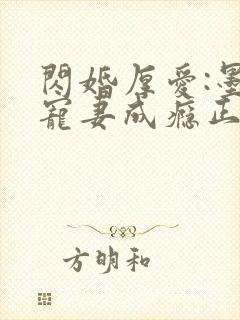 閃婚厚愛:墨
寵妻成癮正
方明和